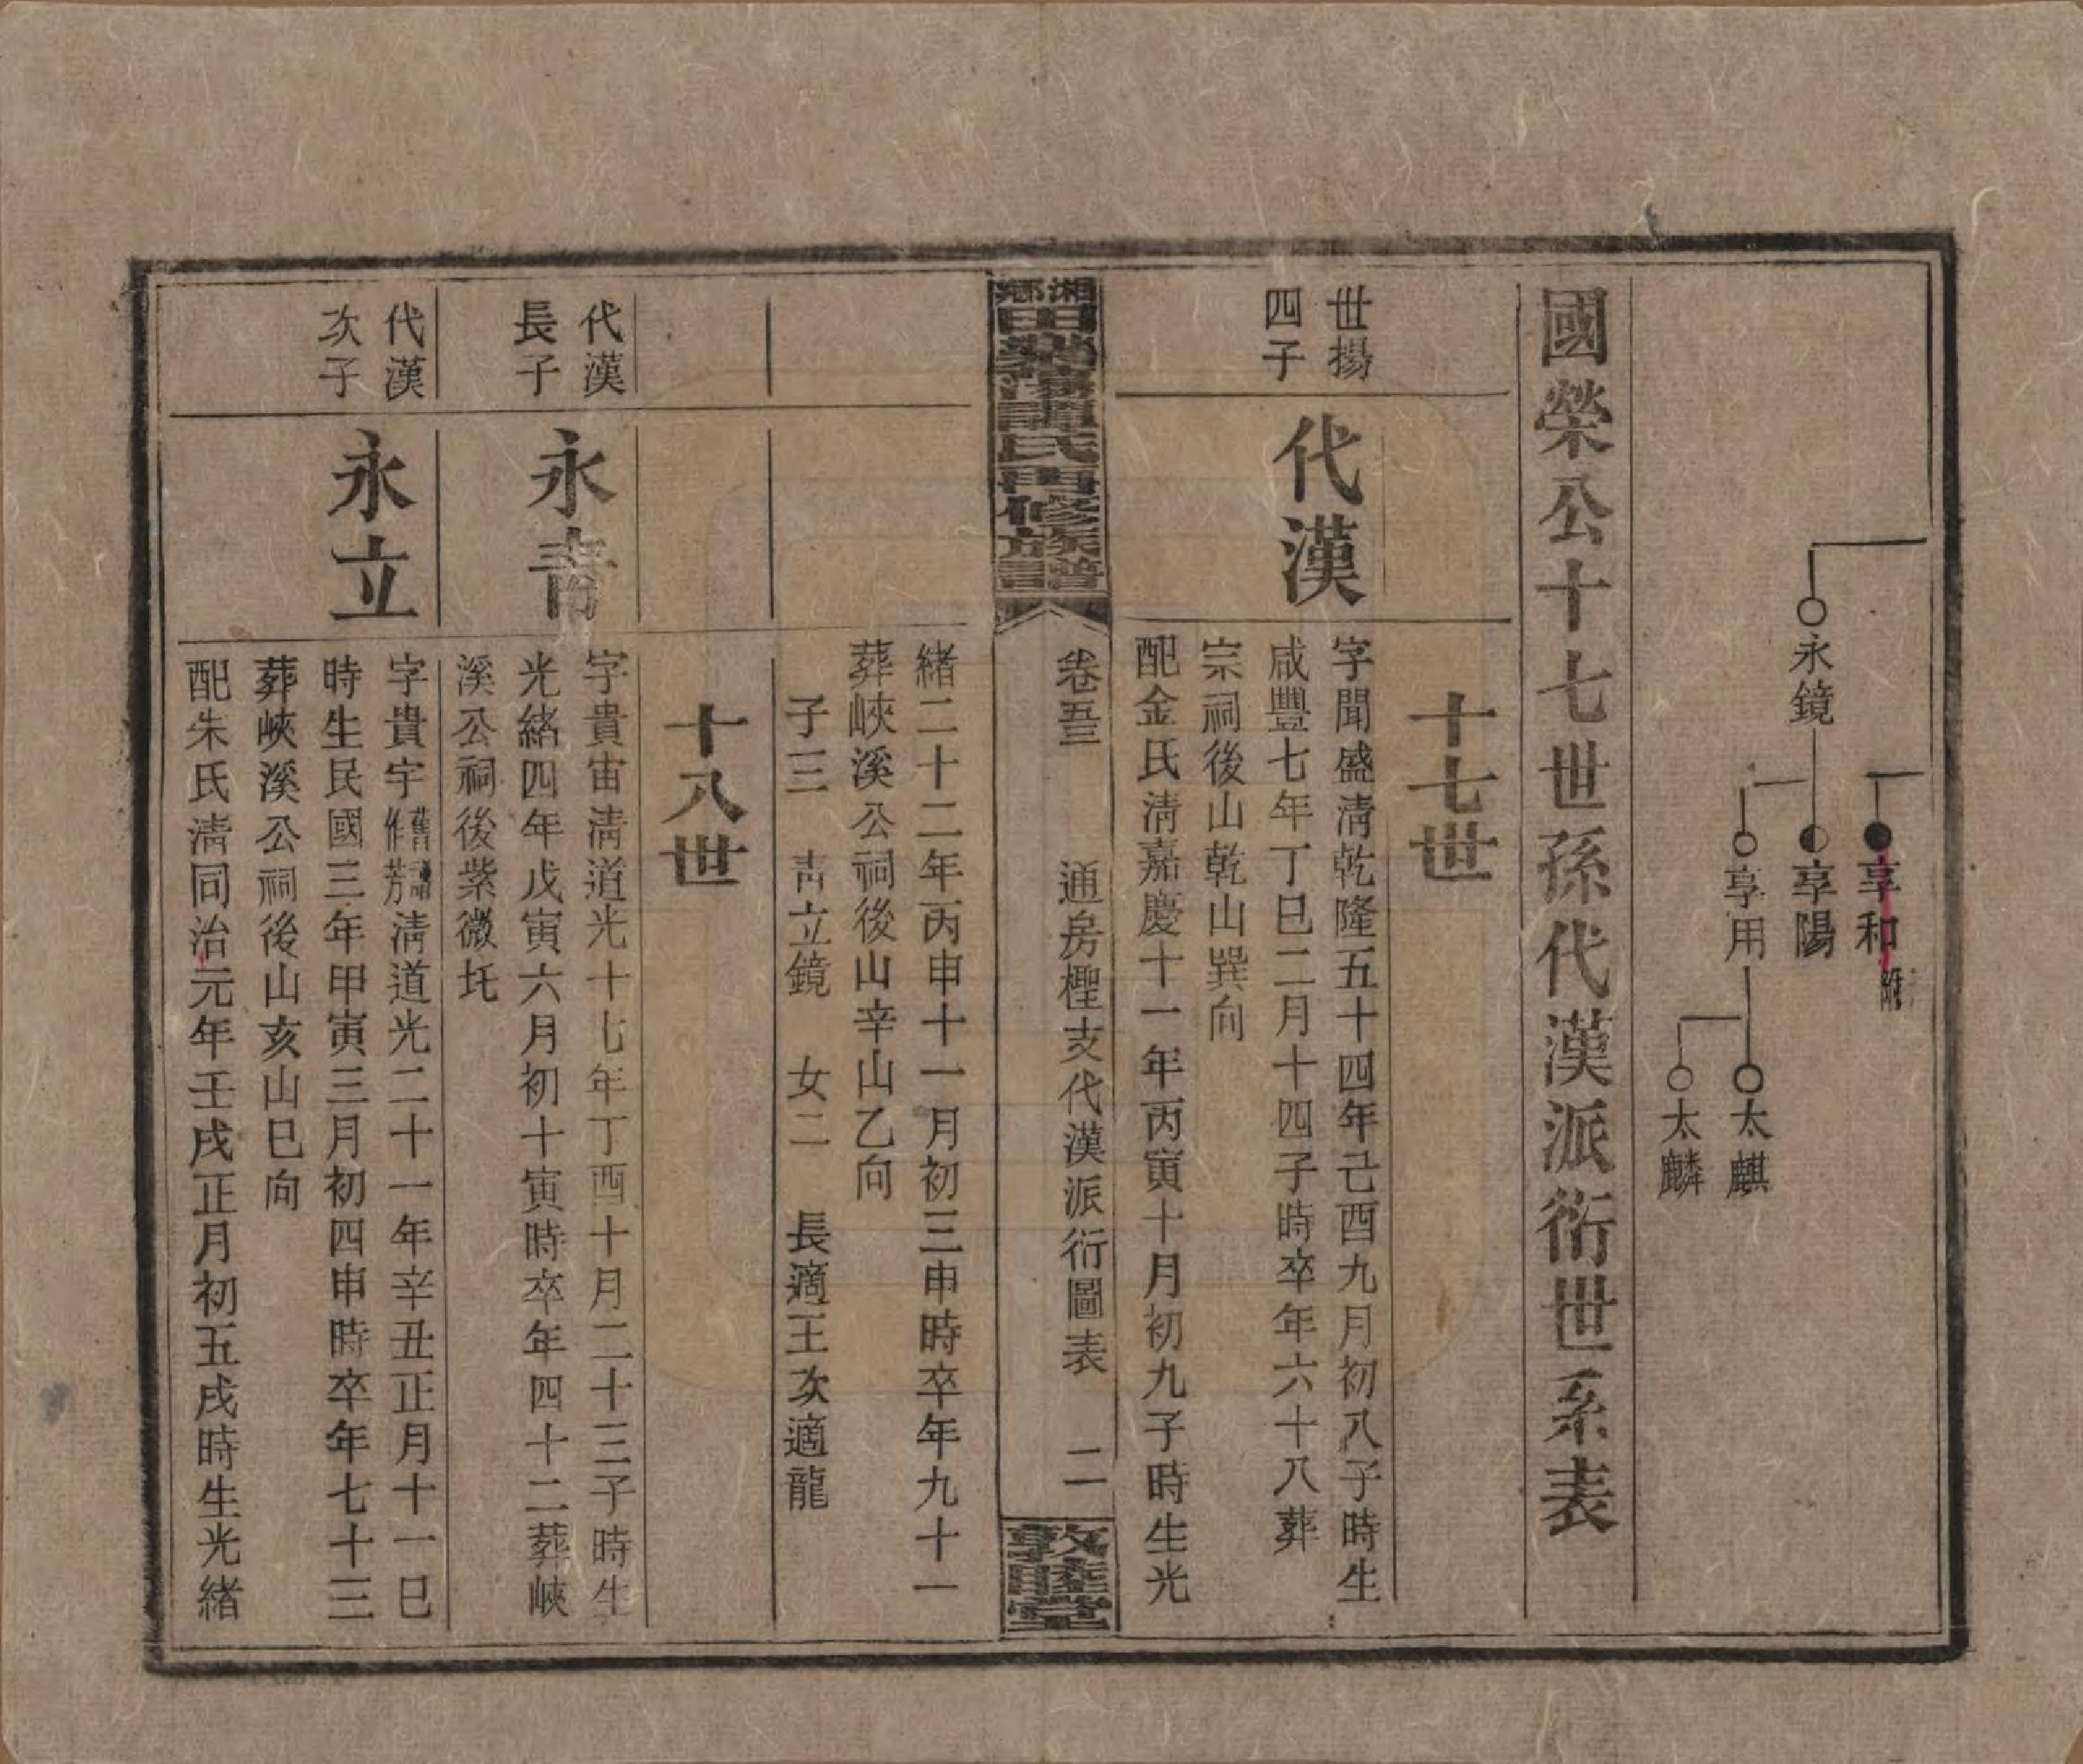 永鏡
享和
附
享陽
享用
太麒
太麟
國榮公十七世孫代漢派衍世系表
十七世
世揚
四子
代漢
字聞盛清乾隆五十四年己酉九月初八子時生
咸豐七年丁巳二月十四子時卒年六十八葬
宗祠後山乾山巽向
配金氏清嘉慶十一年丙寅十月初九子時生光
湘鄉田
氏再修族譜
卷五三
通房樫支代漢派衍圖表
二
敦睦堂
緒二十二年丙申十一月初三申時卒年九十一
葬峽溪公祠後山辛山乙向
子三 青立鏡 女二 長適王次適龍
十八世
代漢
長子
永青
字貴宙清道光十七年丁酉十月二十三子時生
光緒四年戊寅六月初十寅時卒年四十二葬峽
溪公祠後紫微圫
代漢
次子
永立
字貴宇舊譜作芳清道光二十一年辛丑正月十一巳
時生民國三年甲寅三月初四申時卒年七十三
葬峽溪公祠後山亥山巳向
配朱氏清同治元年壬戌正月初五戌時生光緒